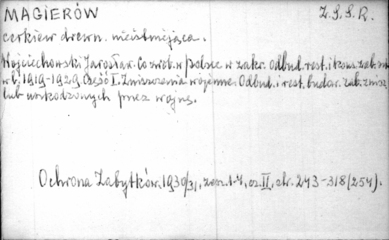 MAGIERÓW Z.S.S.R.
cerkiew drewn. nieistniejąca.
Wojciechowski Jarosław. Co zrob. w Polsce w zakr. odbud. rest. i kons. zab.
w l. 1919-1929 Część I. Zniszczenia wojenne. Odbud. i rest. budow. zab. zniszcz.
lub uszkodzonych przez wojnę.
Ochrona Zabytków. 1930/31, zesz. 1-4, cz. II, str. 243-318 (254).